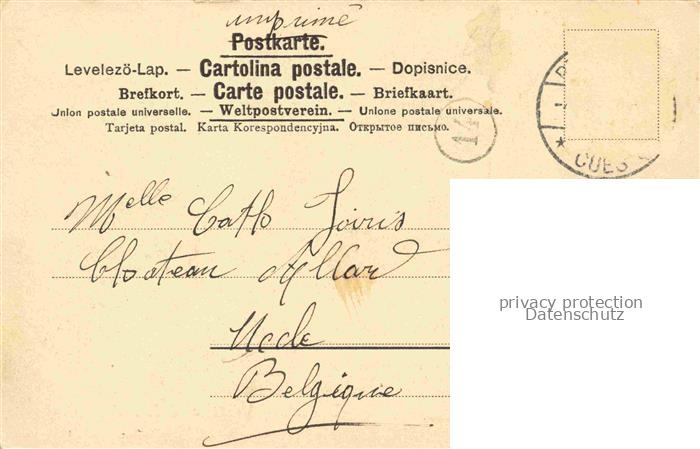 imprimé
Postkarte.
Levelezö-Lap. — Cartolina postale. — Dopisnice.
Brefkort. — Carte postale. — Briefkaart.
Union postale universelle. — Weltpostverein. — Unione postale universale.
Tarjeta postal. Karta Korespondencyjna. Открытое письмо.
14
CUES
Melle
Château Allard
Uccle
Belgique
privacy protection
Datenschutz